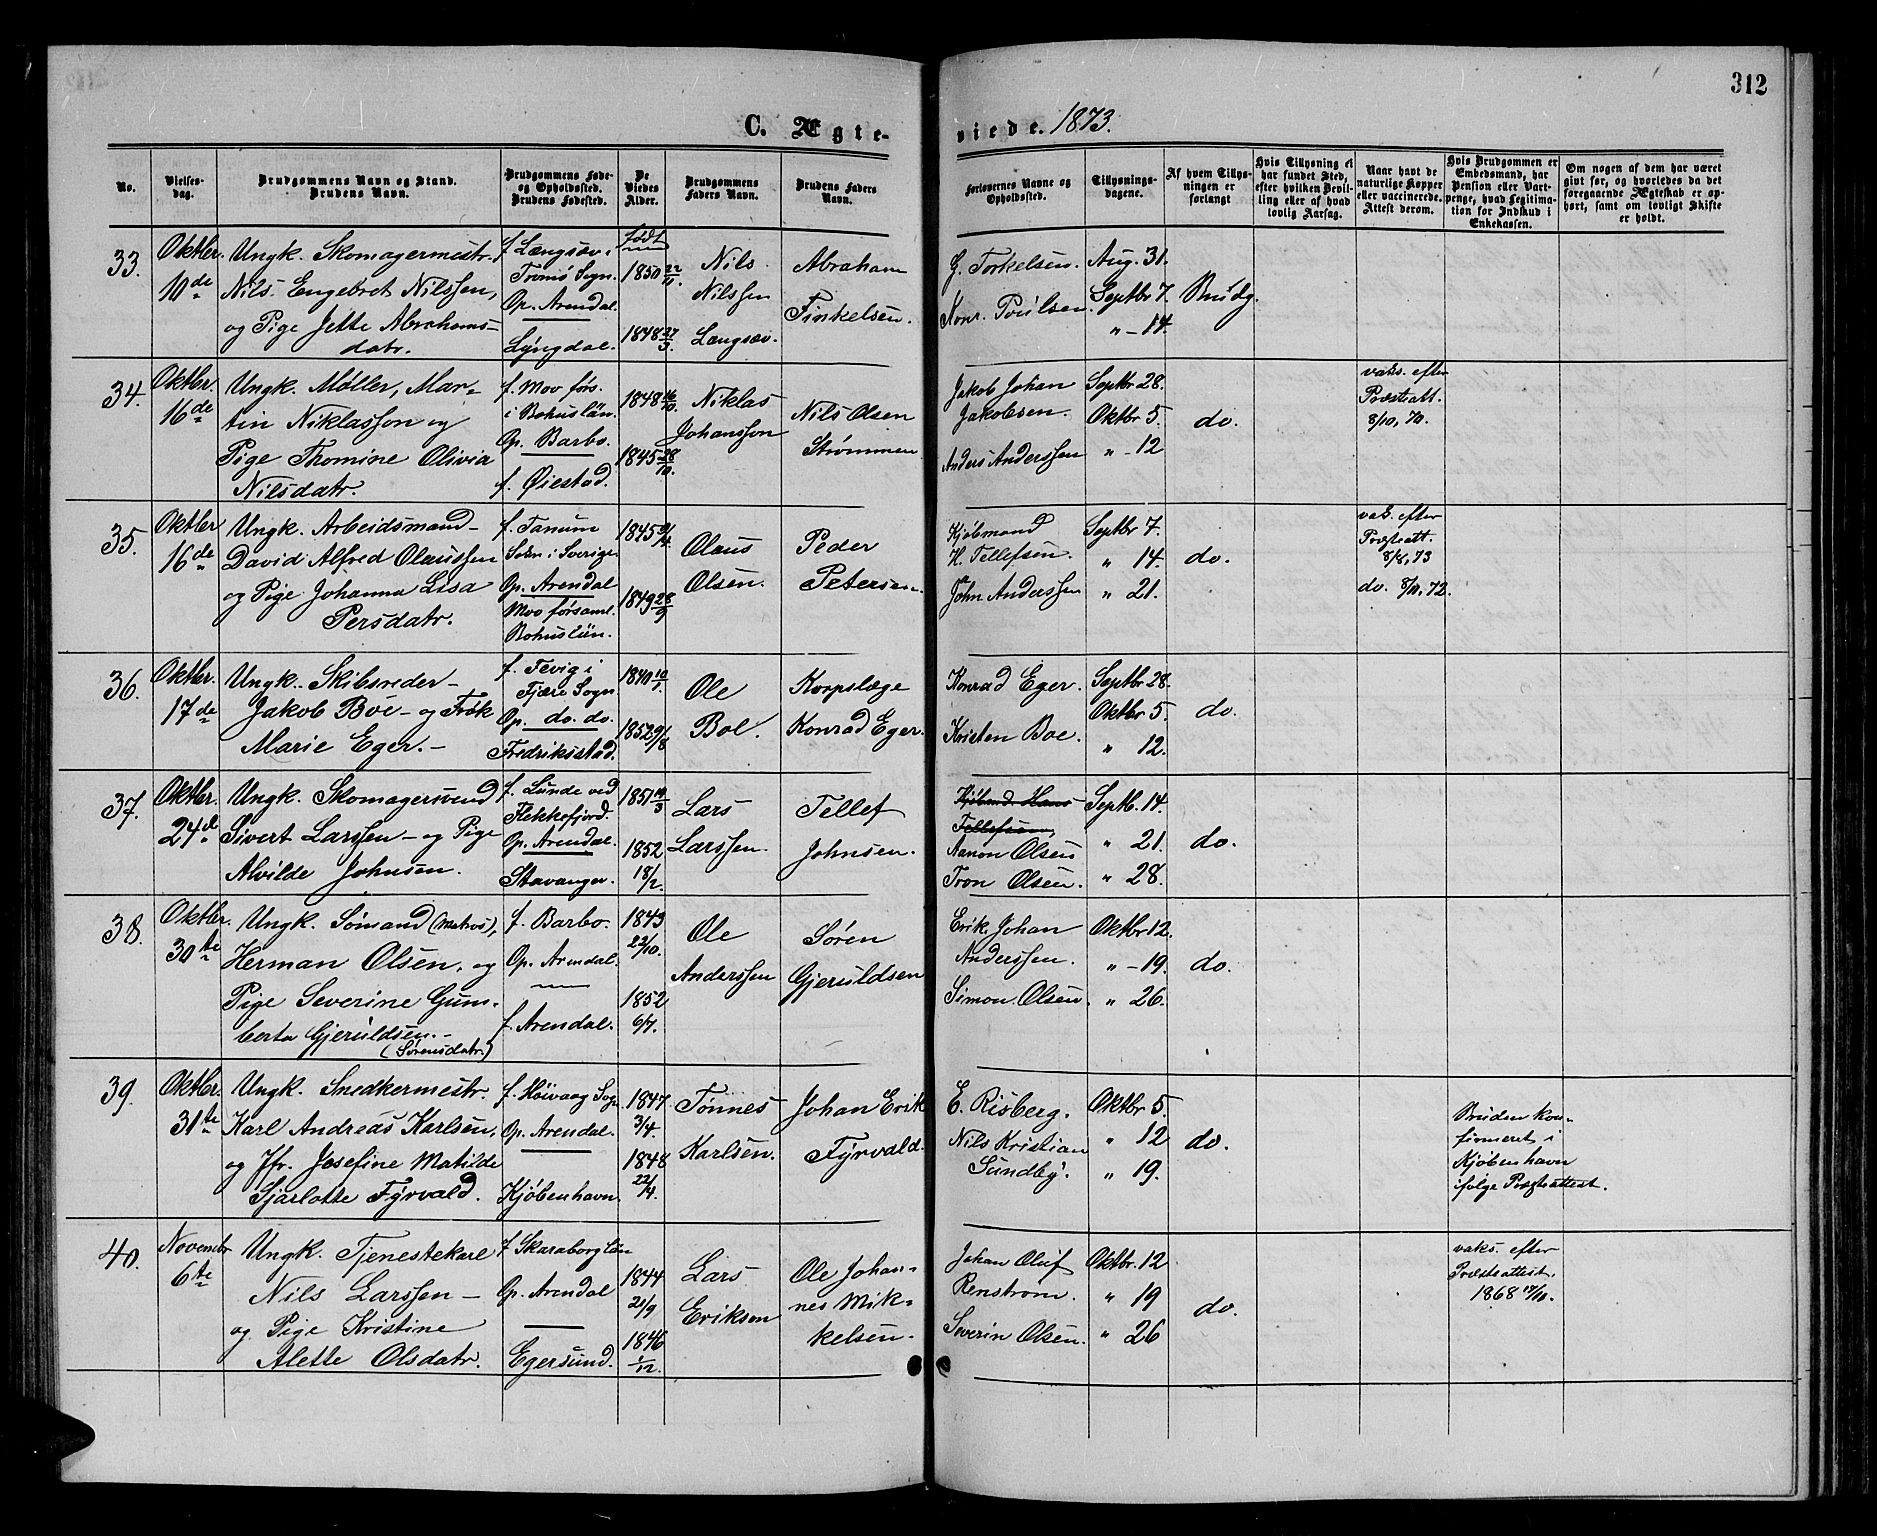 312
C. Ægte-
viede. 1873.
No.
Vielses-
dag.
Brudgommens Navn og Stand.
Brudens Navn.
Brudgommens Føde-
og Opholdssted.
Brudens Fødested.
De
Viedes
Alder.
Brudgommens
Faders Navn.
Brudens Faders
Navn.
Forlovernes Navne og
Opholdssted.
Tillysnings-
dagene.
Af hvem Tillys-
ningen er
forlangt
Hvis Tillysning ei
har fundet Sted,
efter hvilken Bevil-
ling eller af hvad
lovlig Aarsag.
Naar havt de
naturlige Kopper
eller vaccinerede.
Attest derom.
Hvis Brudgommen er
Embedsmand, har
Pension eller Vart-
penge, hvad Legitima-
tion for Indskud i
Enkekassen.
Om nogen af dem har været
gift før, og hvorledes da det
foregaaende Ægteskab er op-
hørt, samt om lovligt Skifte
er holdt.
33.
Oktbr.
10de
Ungk. Skomagermestr.
Nils Engebret Nilssen,
og Pige Jette Abrahams-
datr.
f. Længsæv i
Tromø Sogn.
Op. Arendal.
Lyngdal.
født
1850 22/11.
1848 27/3.
Nils
Nilssen
Længsæv.
Abraham
Finkelsen.
G. Torkelsen.
Konr. Poulsen.
Aug. 31.
Septbr 7.
„ – 14.
Brudg.
34.
Oktbr.
16de
Ungk. Møller, Mar-
tin Niklasson og
Pige Thomine Olivia
Nilsdatr.
f. Mov førs.
i Bohuslän.
Op. Barbo.
f. Øiestad.
1848 16/10.
1845 28/10.
Niklas
Johansson
Nils Olsen
Strømmen
Jakob Johan
Jakobsen.
Anders Anderssen
Septbr 28.
Oktbr 5.
„ – 12
do.
vaks. efter
Præsteatt.
8/10, 70.
35.
Oktbr
16de
Ungk. Arbeidsmand–
David Alfred Olaussen
og Pige Johanna Lisa
Persdatr.
f. Tanum
Sokn i Sverige
Op. Arendal
Mov församl.
Bohuslän.
1845 9/4.
1849 28/9
Olaus
Olsen.
Peder
Petersen.
Kjøbmand
H. Tellefsen.
John Anderssen
Septbr 7.
„ 14.
„ 21.
do.
vak. efter
Præsteatt.
8/8, 73
do. 8/11, 72.
36.
Oktbr.
17de
Ungk. Skibsreder–
Jakob Boe – og Frøk
Marie Eger. –
f. Fevig i
Fjære Sogn
Op. do. do.
Fredriksstad.
1840 10/1.
1852 9/8
Ole
Boe.
Korpslæge
Konrad Eger.
Konrad Eger.
Kristen Boe.
Septbr 28.
Oktbr 5.
„ 12.
do.
37.
Oktbr.
24de
Ungk. Skomagersvend
Sivert Larssen – og Pige
Alvilde Johnsen.
f. Lunde ved
Flekkefjord.
Op. Arendal.
Stavanger.
1851 19/3
1852
18/2.
Lars
Larssen.
Tellef
Johnsen.
Kjøbmd. Hans
Tellefsen,
Aanon Olsen
Tron Olsen.
Septb. 14.
„ 21.
„ 28.
do.
38.
Oktbr.
30te
Ungk. Sømand (Matros),
Herman Olsen, og
Pige Severine Gum-
berta Gjeruldsen. –
(Sørensdatr)
f. Barbo.
Op. Arendal.
f. Arendal.
1843
22/10.
1852
6/7.
Ole
Anderssen
Søren
Gjeruldsen
Erik Johan
Anderssen.
Simon Olsen.
Oktbr 12.
„ – 19.
„ 26.
do.
39.
Oktbr.
31te
Ungk. Snedkermestr.
Karl Andreas Karlsen,
og Jfr. Josefine Matilde
Sjarlotte Fyrvald.
f. Høivaag Sogn
Op. Arendal.
Kjøbenhavn.
1847
3/4.
1848
22/4.
Tønnes
Karlsen.
Johan Erik
Fyrvald.
E. Risberg.
Nils Kristian
Sundby.
Oktbr 5.
„ 12
„ 19.
do.
Bruden kon-
firmeret i
Kjøbenhavn
ifølge Præsteattest.
40.
Novembr
6te
Ungk. Tjenestekarl
Nils Larssen –
og Pige Kristine
Alette Olsdatr.
f Skaraborg län
Op. Arendal
Egersund.
1844
21/9
1846
1/12.
Lars
Erikson
Ole Johan-
nes Mik-
kelsen.
Johan Oluf
Renstrom.
Severin Olsen.
Oktbr. 12
„ 19
„ 26
do.
vaks. efter
Præsteattest.
1868 17/10.